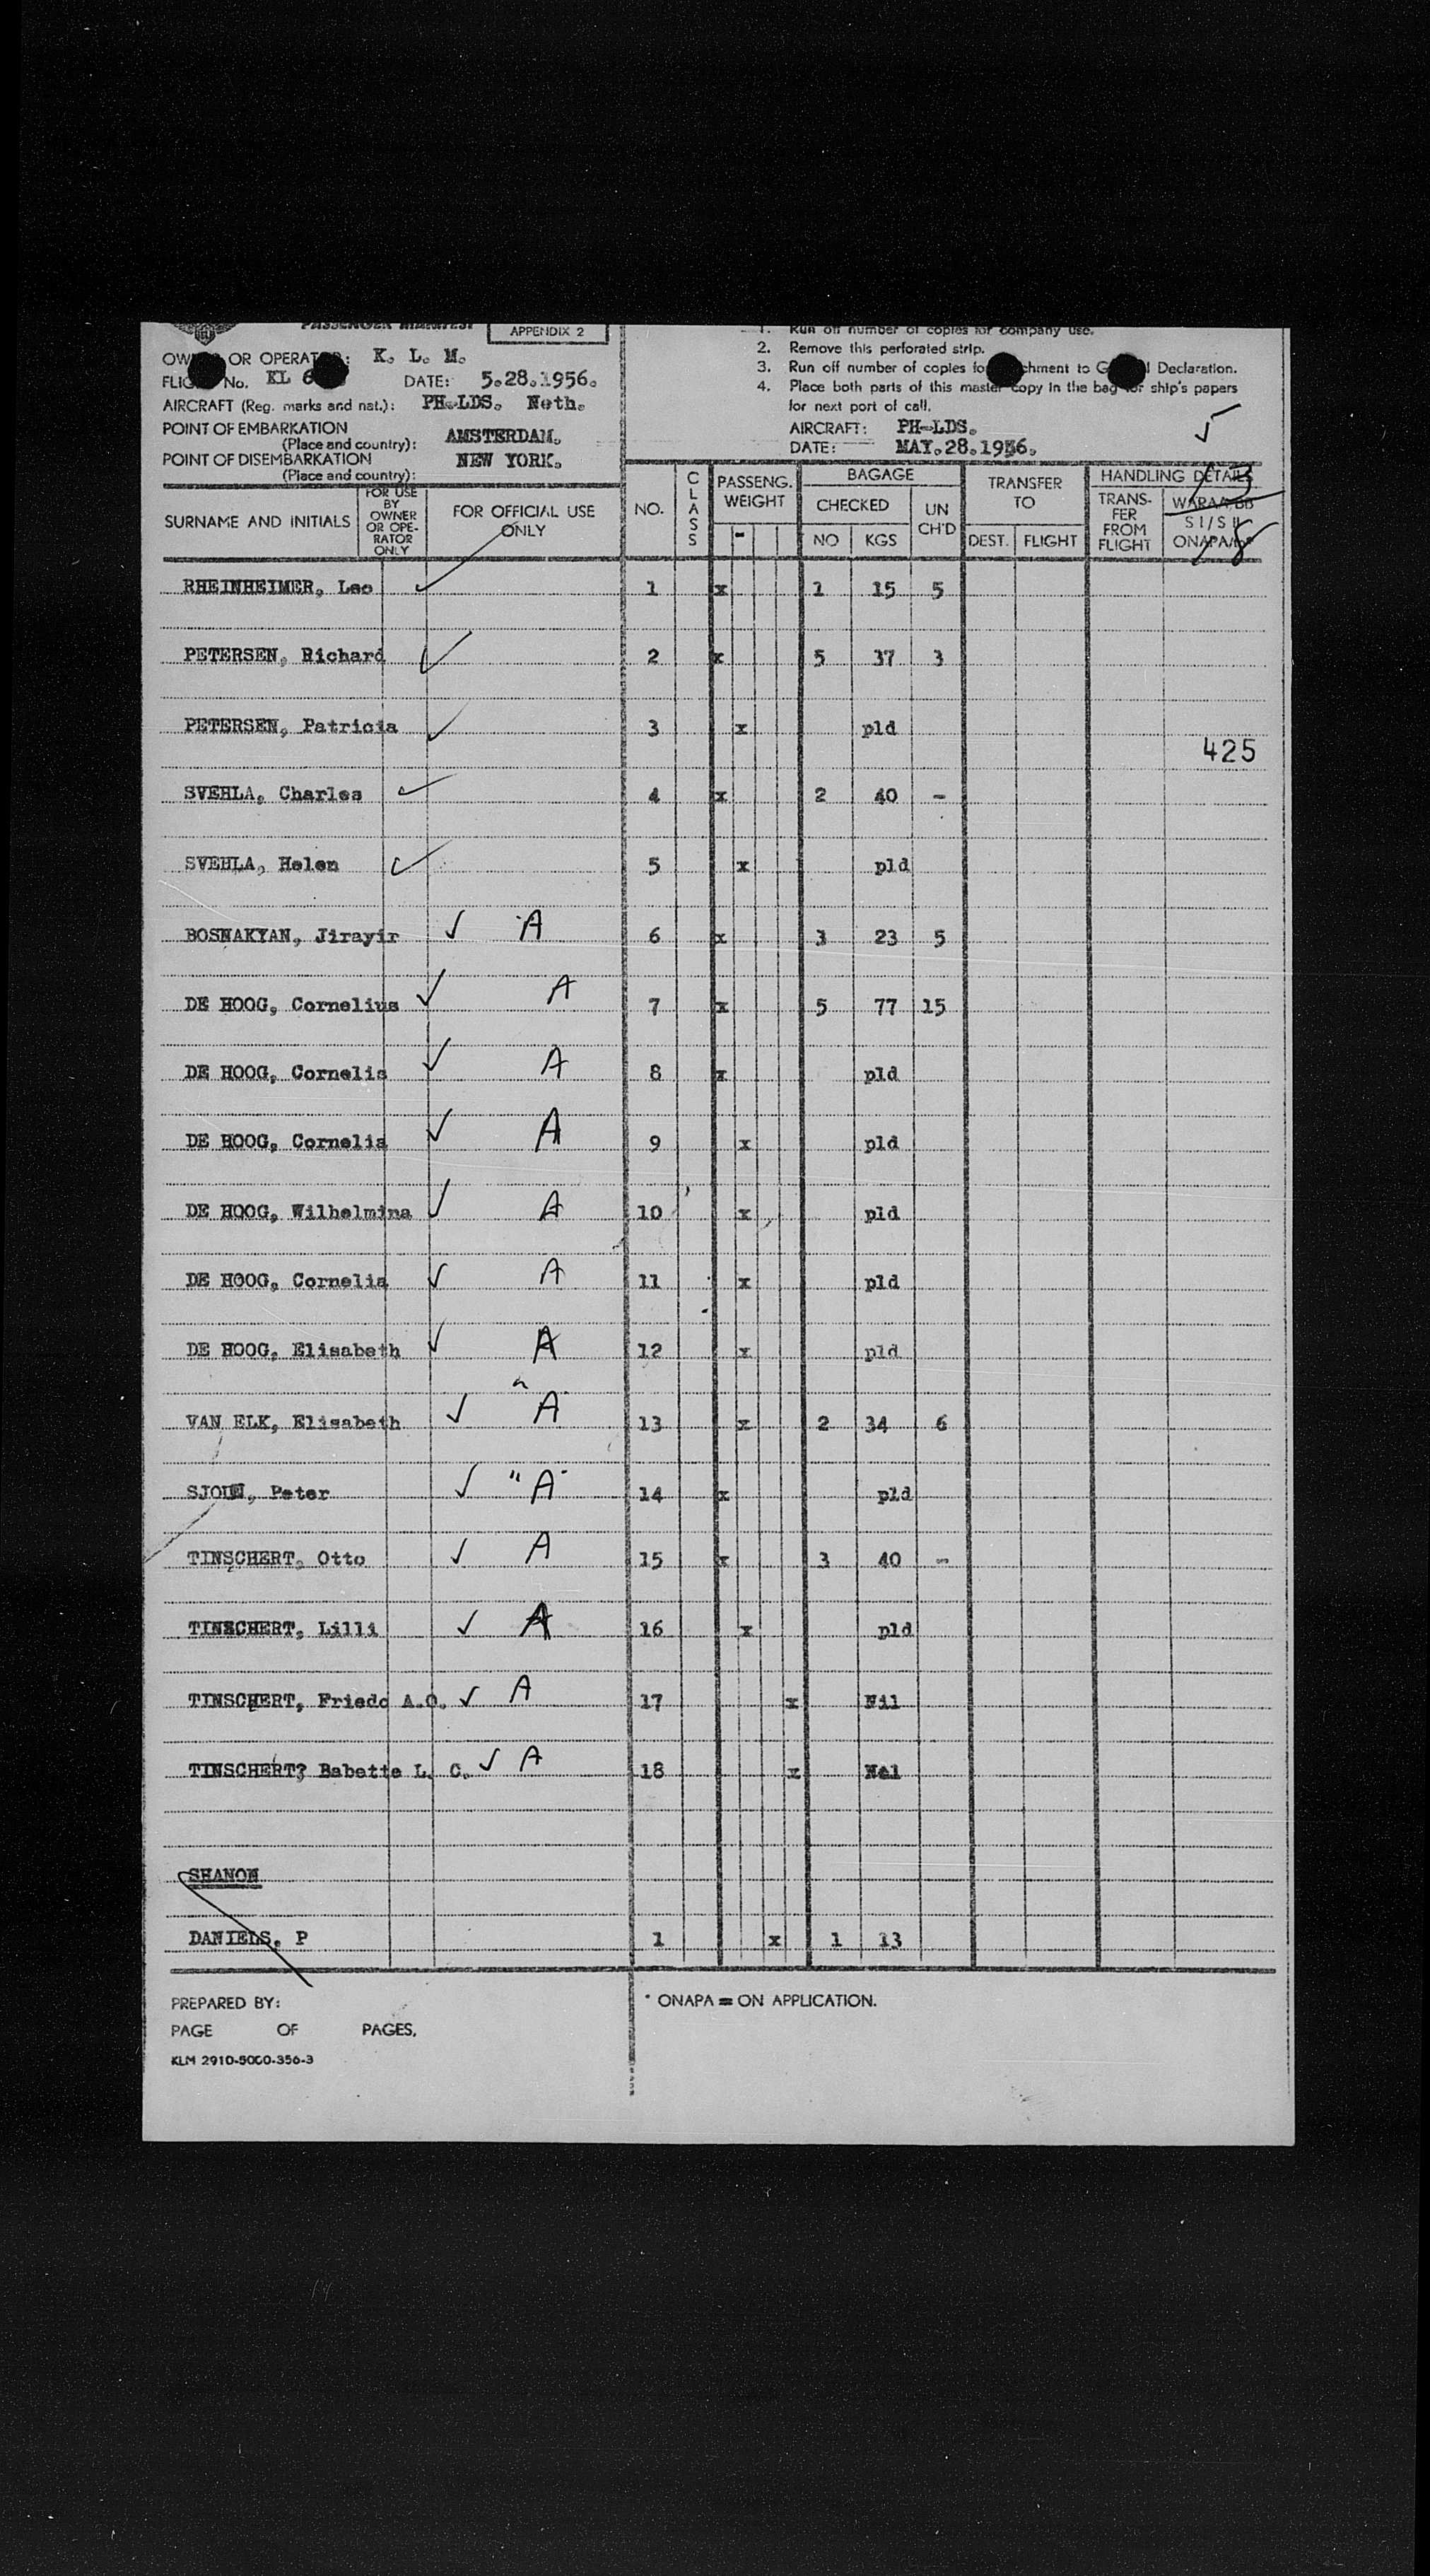 PASSENGER MANIFEST
APPENDIX 2
OR OPERATOR: K. L. M.
No. KL 6 DATE: 5.28.1956.
AIRCRAFT (Reg. marks and nat.): PH-LDS. Neth.
POINT OF EMBARKATION
(Place and country): AMSTERDAM.
POINT OF DISEMBARKATION NEW YORK.
(Place and country):
1. Run off number of copies for company use.
2. Remove this perforated strip.
3. Run off number of copies for Declaration.
4. Place both parts of this master copy in the bag for ship's papers
for next port of call.
AIRCRAFT: PH-LDS.
DATE: MAY.28.1956.
5
13
18
SURNAME AND INITIALS
FOR USE BY OWNER OR OPE- RATOR ONLY
FOR OFFICIAL USE ONLY
NO. CLASS PASSENG. WEIGHT BAGAGE TRANSFER TO HANDLING DETAILS
CHECKED UN CH'D TRANS- FER FROM FLIGHT
NO KGS DEST. FLIGHT S I / S II
RHEINHEIMER, Leo ✓ 1 x 1 15 5
PETERSEN, Richard ✓ 2 x 5 37 3
PETERSEN, Patricia ✓ 3 x pld
425
SVEHLA, Charles ✓ 4 x 2 40 -
SVEHLA, Helen ✓ 5 x pld
BOSNAKYAN, Jirayir ✓ A 6 x 3 23 5
DE HOOG, Cornelius ✓ A 7 x 5 77 15
DE HOOG, Cornelis ✓ A 8 x pld
DE HOOG, Cornelia ✓ A 9 x pld
DE HOOG, Wilhelmina ✓ A 10 x pld
DE HOOG, Cornelia ✓ A 11 x pld
DE HOOG, Elisabeth ✓ A 12 x pld
VAN ELK, Elisabeth ✓ A 13 x 2 34 6
Peter ✓ "A" 14 x pld
TINSCHERT, Otto ✓ A 15 x 3 40 -
TINSCHERT, Lilli ✓ A 16 x pld
TINSCHERT, Friedo A.O. ✓ A 17 x Nil
TINSCHERT? Babette L. C. ✓ A 18 x Nel
SHANON
DANIELS, P 1 x 1 13
PREPARED BY:
PAGE OF PAGES.
KLM 2910-5000-356-3
* ONAPA = ON APPLICATION.